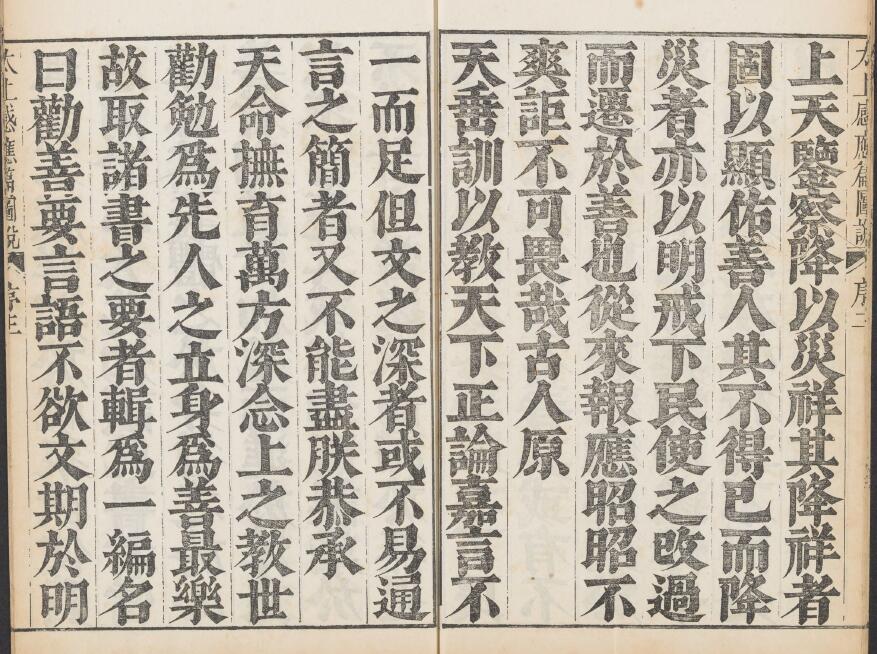 太上感應篇圖說 序二
上天鑒察降以災祥其降祥者
固以顯佑善人其不得已而降
災者亦以明戒下民使之改過
而遷於善也從來報應昭昭不
爽詎不可畏哉古人原
天垂訓以教天下正論嘉言不
一而足但文之深者或不易通
言之簡者又不能盡朕恭承
天命撫育萬方深念上之教世
勸勉爲先人之立身爲善最樂
故取諸書之要者輯爲一編名
曰勸善要言語不欲文期於明
太上感應篇圖說 序三